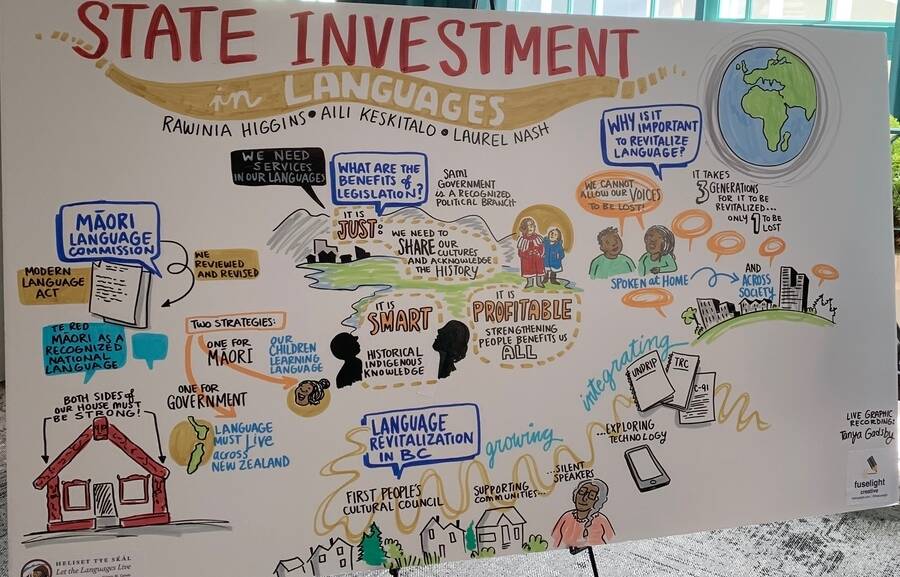 STATE INVESTMENT
in LANGUAGES
RAWINIA HIGGINS • AILI KESKITALO • LAUREL NASH
MĀORI
LANGUAGE
COMMISSION
MODERN
LANGUAGE
ACT
WE
REVIEWED
AND REVISED
TE REO
MĀORI AS A
RECOGNIZED
NATIONAL
LANGUAGE
TWO STRATEGIES:
ONE FOR
MĀORI
OUR
CHILDREN
LEARNING
LANGUAGE
ONE FOR
GOVERNMENT
LANGUAGE
MUST Live
across
NEW ZEALAND
BOTH SIDES of
OUR HOUSE MUST
BE STRONG!
WE NEED
SERVICES
IN OUR LANGUAGES
WHAT ARE THE
BENEFITS of
LEGISLATION?
SAMI
GOVERNMENT
is A RECOGNIZED
POLITICAL BRANCH
IT IS
JUST:
WE NEED TO
SHARE OUR
CULTURES
AND ACKNOWLEDGE
THE HISTORY
IT IS
SMART
HISTORICAL
INDIGENOUS
KNOWLEDGE
IT IS
PROFITABLE
STRENGTHENING
PEOPLE BENEFITS US
ALL
WHY IS IT
IMPORTANT
TO REVITALIZE
LANGUAGE?
WE CANNOT
ALLOW OUR VOICES
TO BE LOST!
IT TAKES
3 GENERATIONS
FOR IT TO BE
REVITALIZED...
ONLY 1 TO BE
LOST
SPOKEN at HOME
AND
ACROSS
SOCIETY
LANGUAGE
REVITALIZATION
IN BC
FIRST PEOPLE'S
CULTURAL COUNCIL
growing
SUPPORTING
COMMUNITIES...
...SILENT
SPEAKERS
...EXPLORING
TECHNOLOGY
integrating
UNDRIP
TRC
C-91
LIVE GRAPHIC
RECORDING:
Tanya Gadsby
fuselight
creative
HELISET TŦE SḰÁL
Let the Languages Live